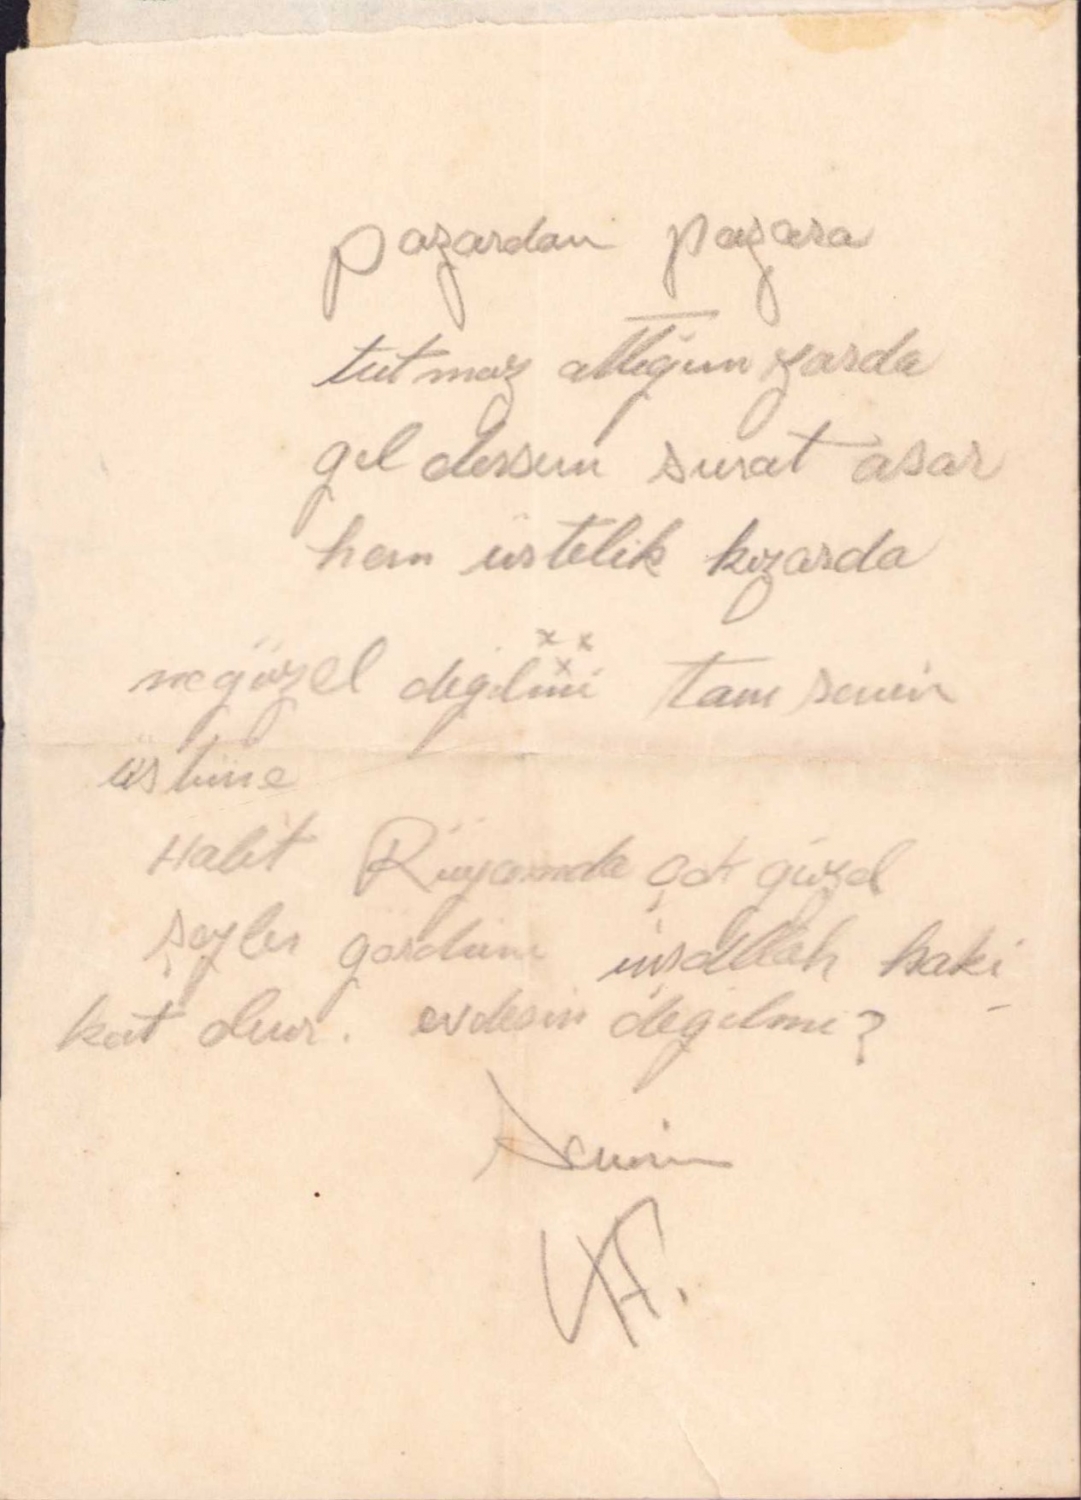 pazardan pazara
tutmaz attığım zarda
gel dersem surat asar
hem üstelik kızarda
x x
x
ne güzel değilmi tam senin
üstüne
Halit Rüyamda çok güzel
şeyler gördüm inşallah haki
kat olur. evdesin değilmi?
Senin